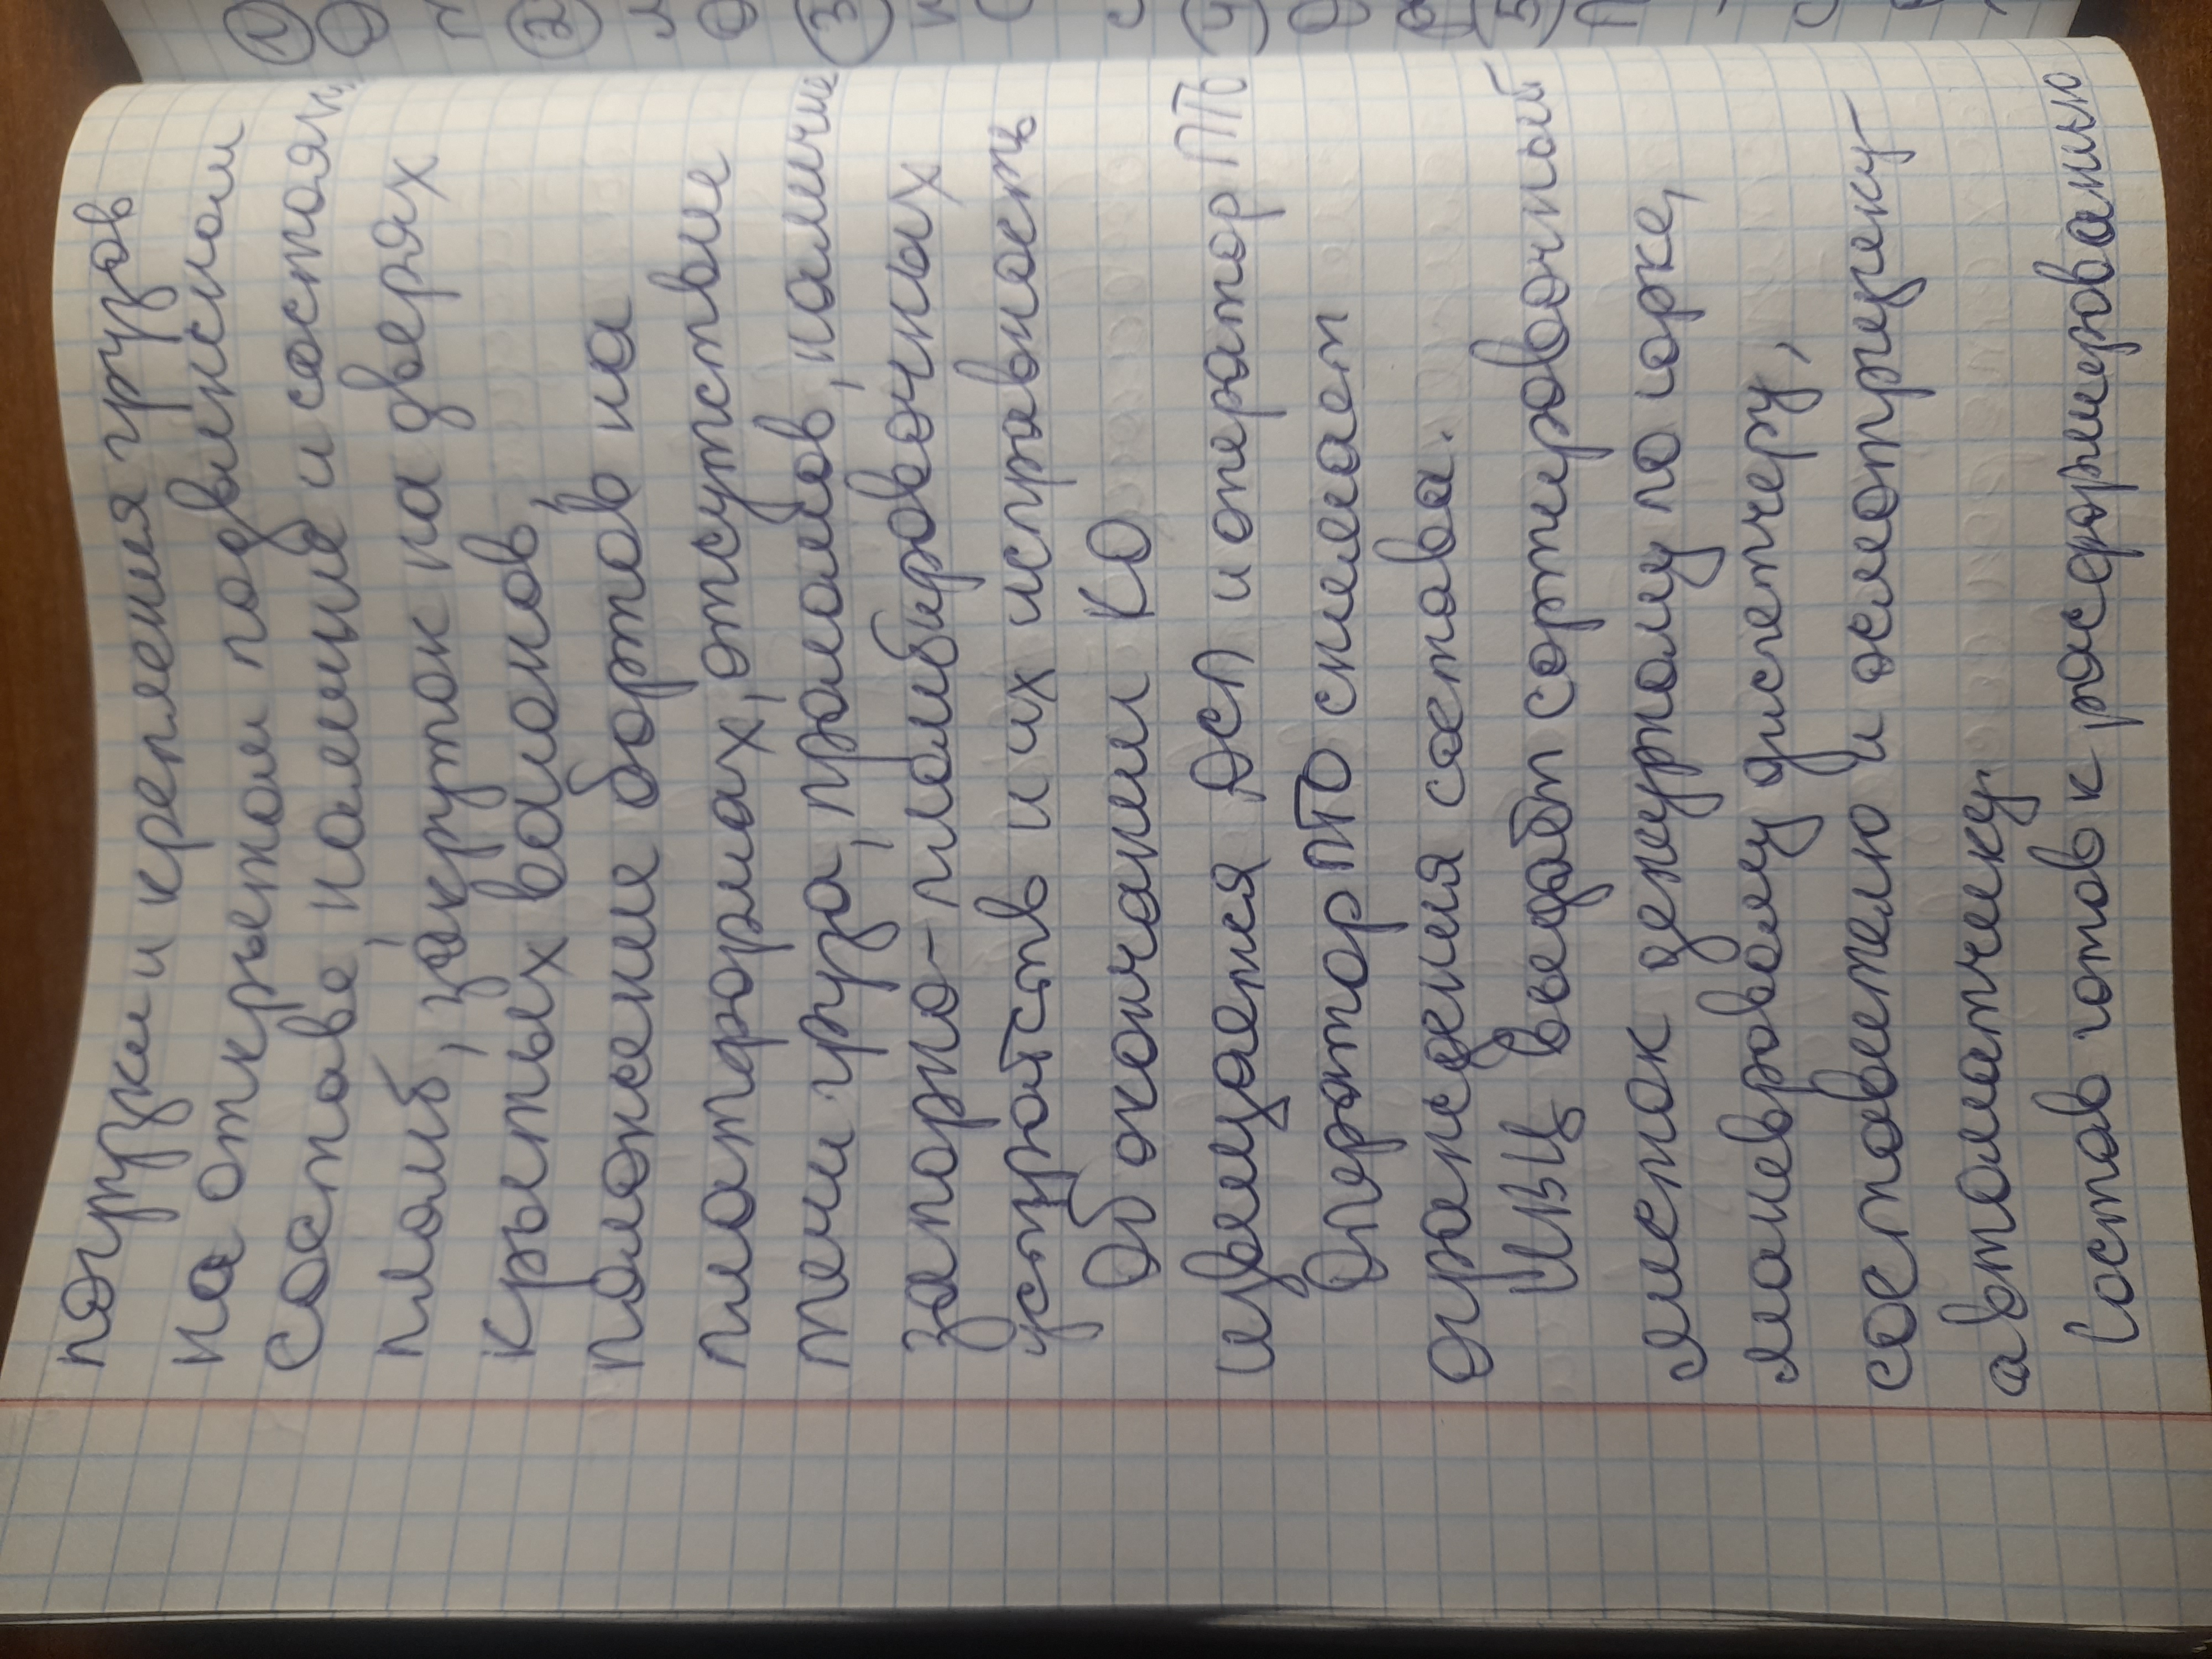 погрузки и крепления грузов
на открытом подвижном
составе, наличие и состоян
пломб, закруток на дверях
крытых вагонов,
положение бортов на
платформах, отсутствие
течи груза, проломов, наличие
запорно-пломбировочных
устройств и их исправность
Об окончании КО
извещается ДСП и оператор ПТО
Оператор ПТО снимает
ограждения состава.
ИВЦ выдаёт сортировочный
листок дежурному по горке,
маневровому диспетчеру,
составителю и осмотрщику-
автоматчику.
Состав готов к расформированию
1
2
3
4
5